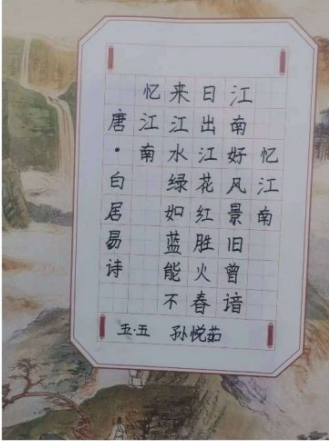 忆江南
江南好风景旧曾谙
日出江花红胜火春
来江水绿如蓝能不
忆江南
唐·白居易诗
五·五 孙悦茹